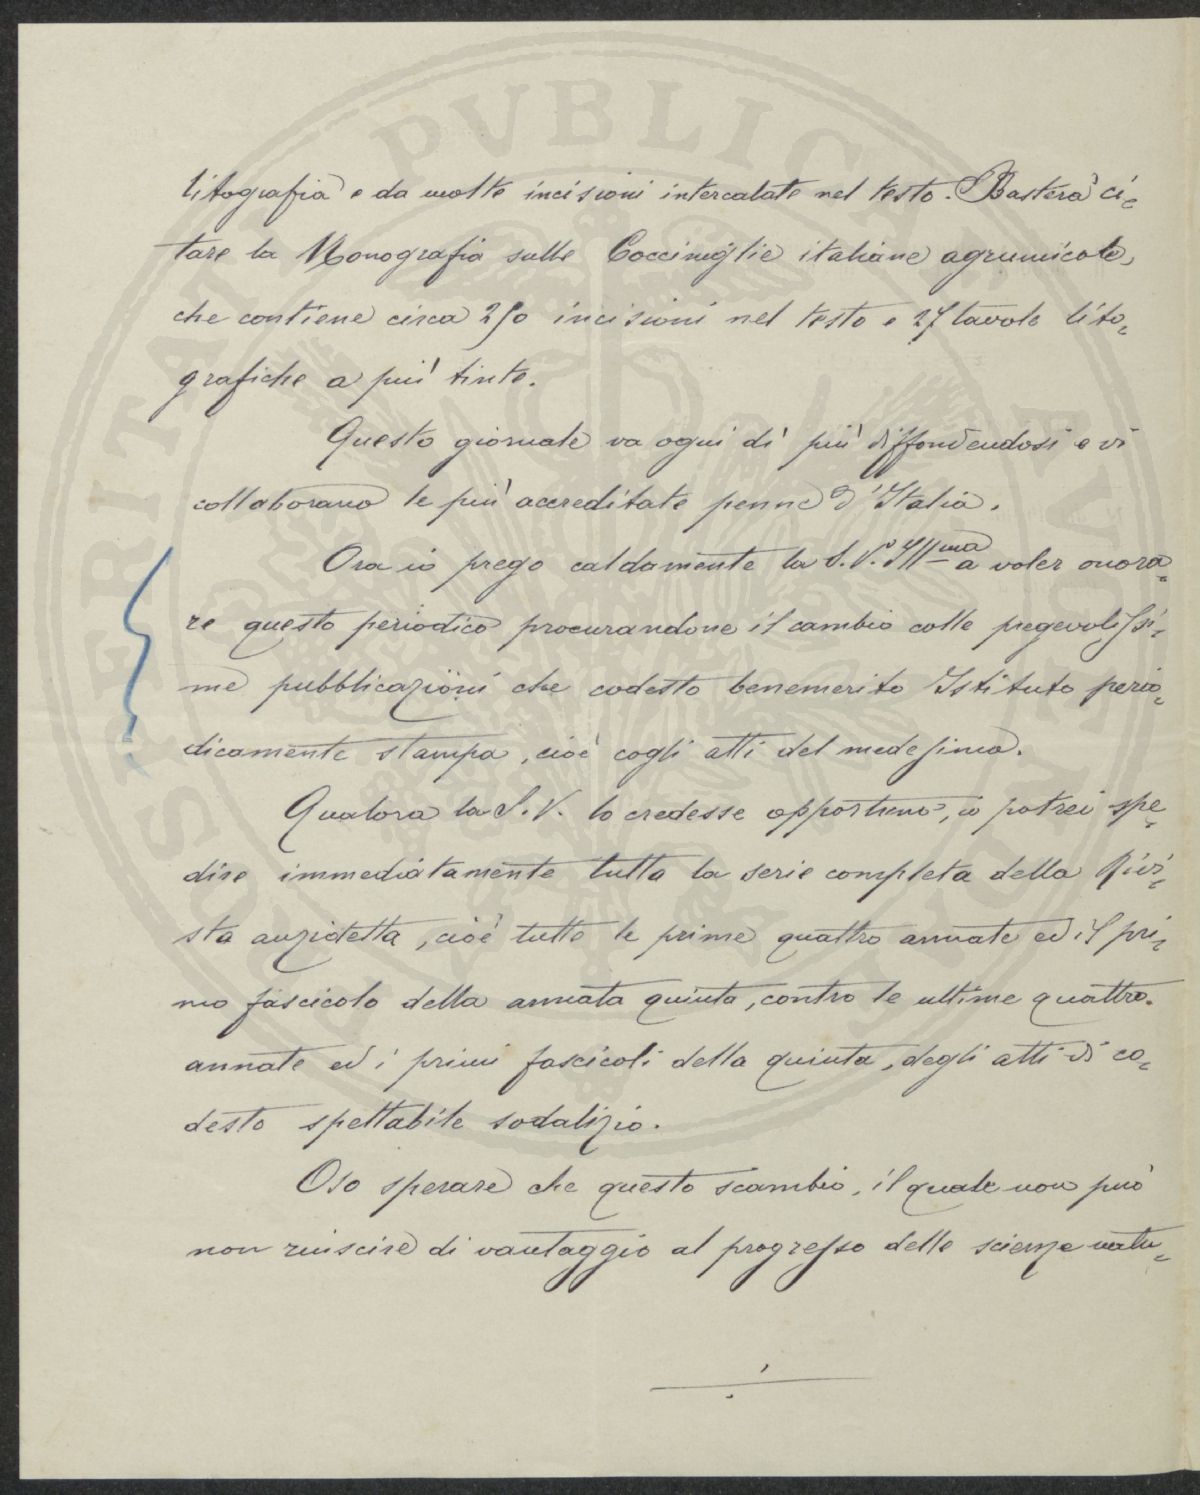 litografia e da molte incisioni intercalate nel testo. Basterà ci-
tare la Monografia sulle Cocciniglie italiane agrumicole,
che contiene circa 250 incisioni nel testo e 27 tavole lito-
grafiche a più tinte.
Questo giornale va ogni dì più diffondendosi e vi
collaborano le più accreditate penne d'Italia.
Ora io prego caldamente la S. V. Ill.ma a voler onora-
re questo periodico procurandone il cambio colle pregevolissi-
me pubblicazioni che codesto benemerito Istituto perio-
dicamente stampa, cioè cogli atti del medesimo.
Qualora la S. V. lo credesse opportuno, io potrei spe-
dire immediatamente tutta la serie completa della Rivi-
sta anzidetta, cioè tutte le prime quattro annate ed il pri-
mo fascicolo della annata quinta, contro le ultime quattro
annate ed i primi fascicoli della quinta, degli atti di co-
desto spettabile sodalizio.
Oso sperare che questo scambio, il quale non può
non riuscire di vantaggio al progresso delle scienze natu-